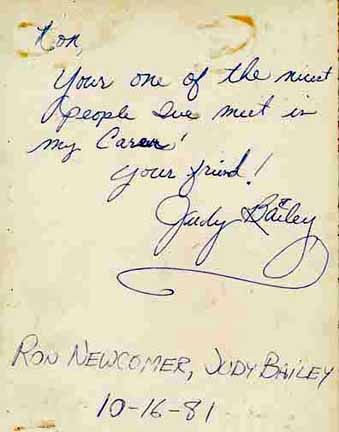 Ron,
Your one of the nicest
people I've meet in
my Career!
Your friend!
Judy Bailey
RON NEWCOMER, JUDY BAILEY
10-16-81